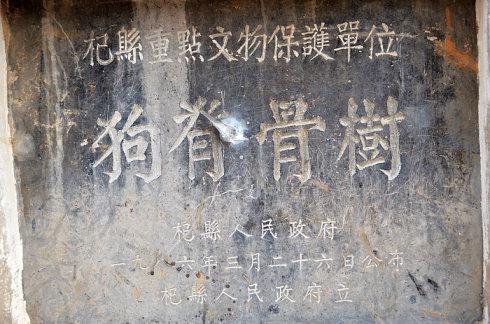 杞縣重點文物保護單位
狗脊骨樹
杞縣人民政府
一九八六年三月二十六日公布
杞縣人民政府立